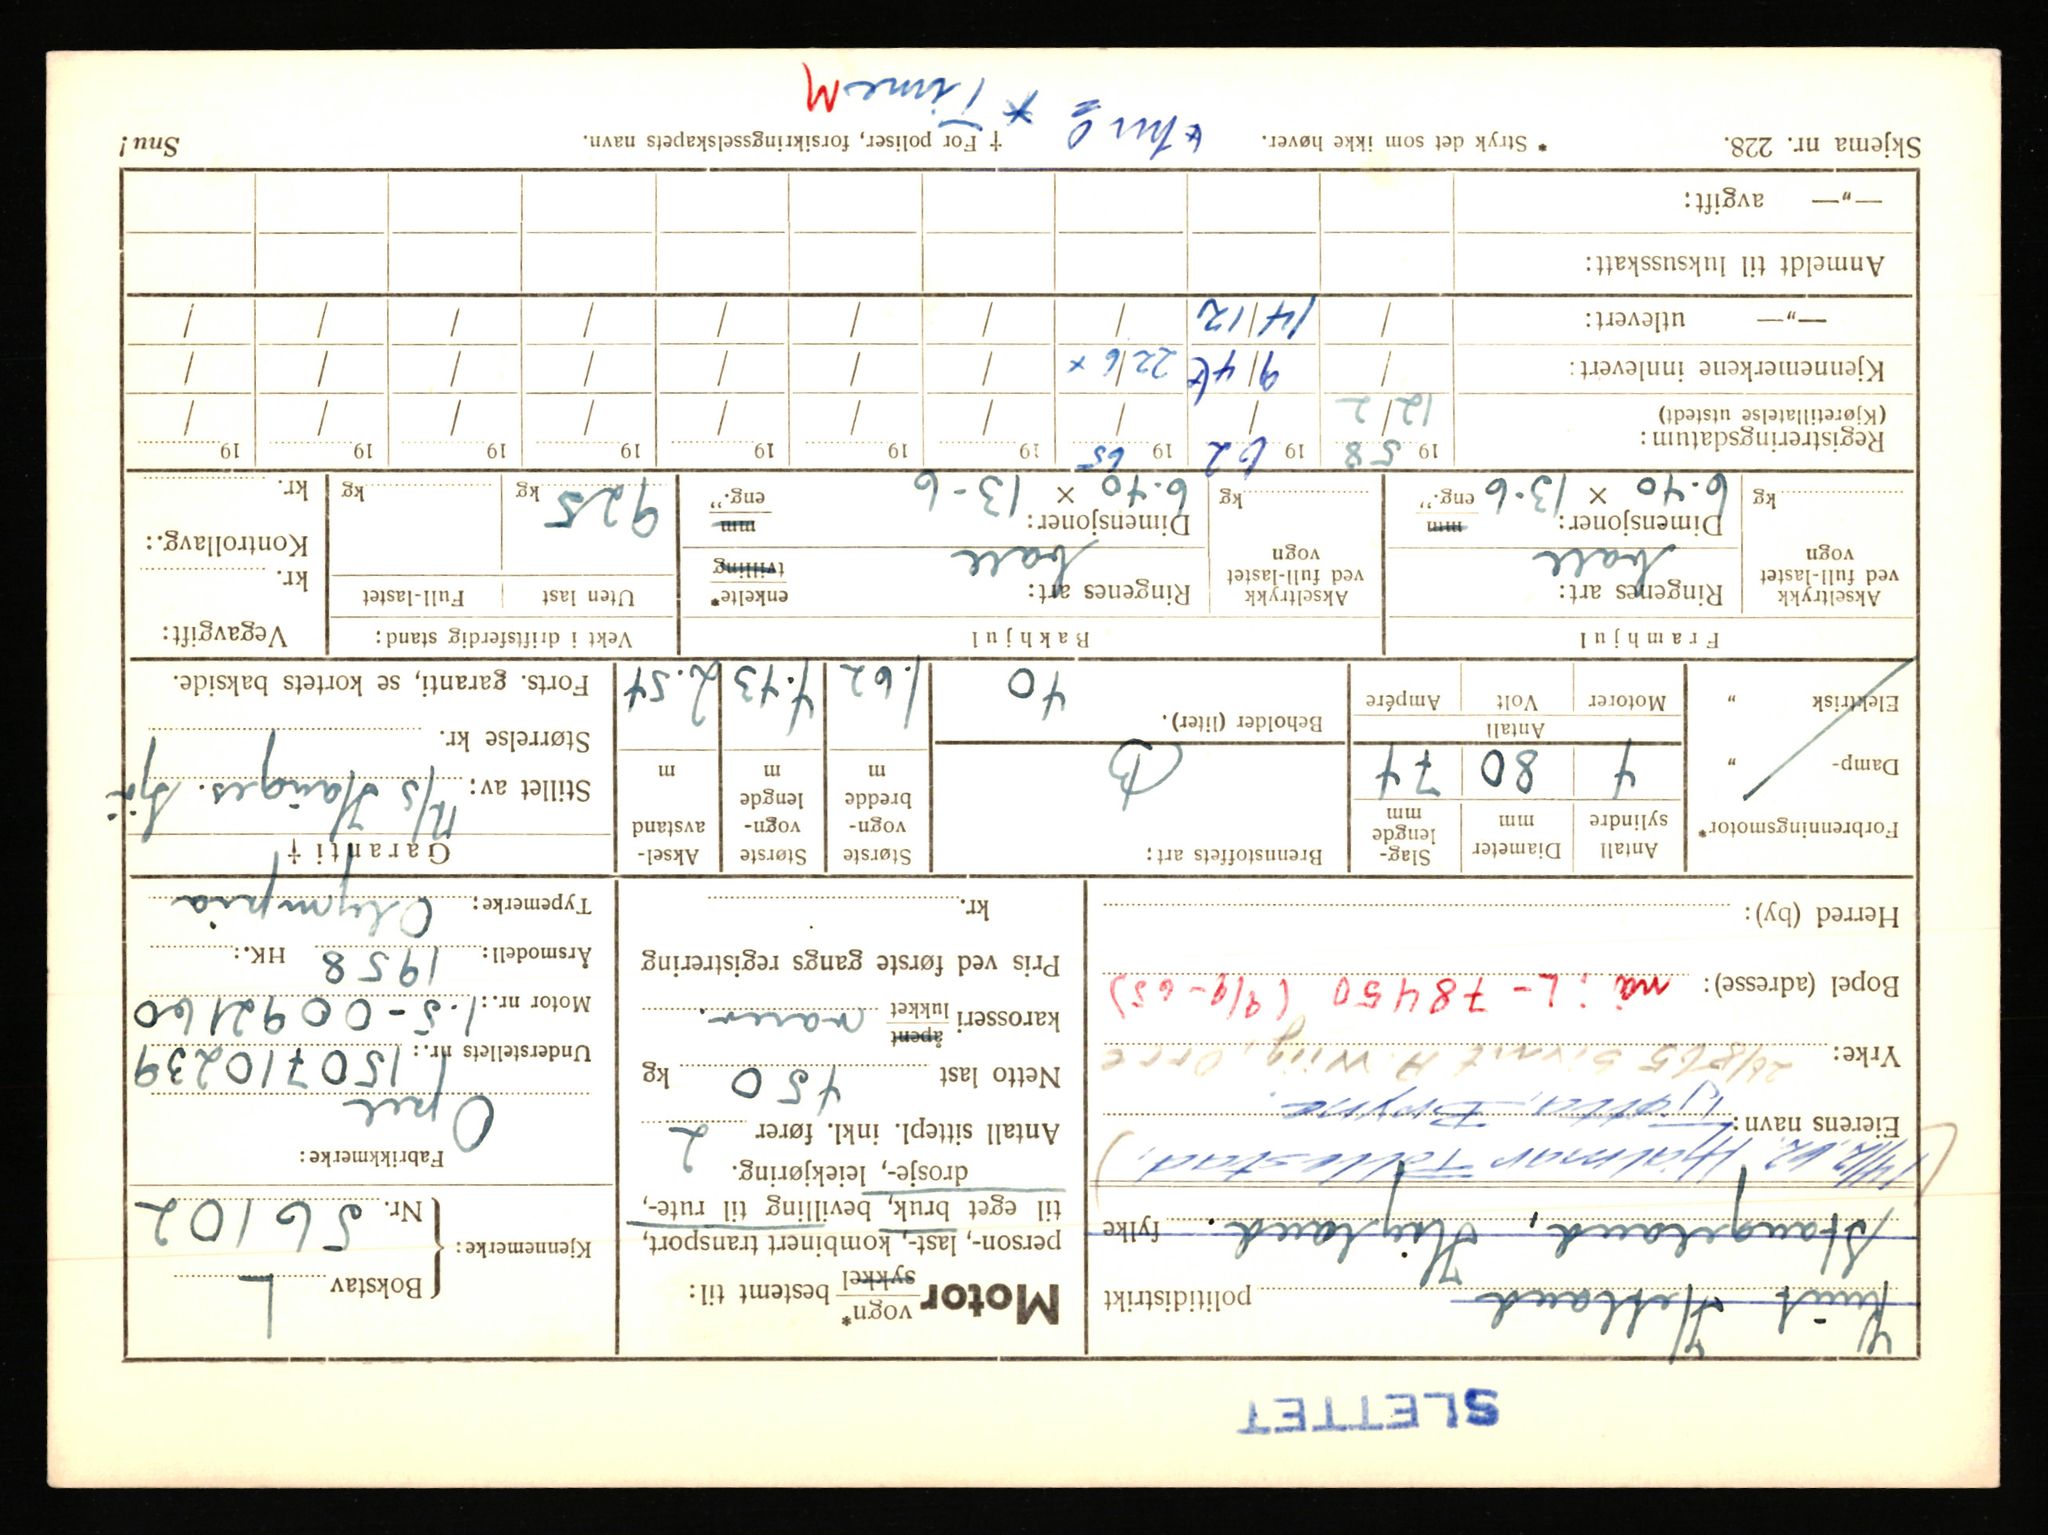 SLETTET
Knut Hetland politidistrikt
Stangeland, Høyland. fylke
(14/12.62. Hjalmar Tollestad.)
Eierens navn: Tjøtta, Bryne.
Yrke: 26/8 65 Sivert A. Wiig, Orre
Bopel (adresse): nå: L-78450 (9/9-65)
Herred (by):
Motor vogn* sykkel bestemt til:
person-, last-, kombinert transport,
til eget bruk, bevilling til rute-,
drosje-, leiekjøring.
Antall sittepl. inkl. fører 2
Netto last 450 kg
karosseri åpent lukket varev.
Pris ved første gangs registrering
kr.
Kjennemerke: { Bokstav L
Nr. 56102
Fabrikkmerke:
Opel
Understellets nr.: 1150710239
Motor nr.: 1.5-0092160
Årsmodell: 1958 HK.:
Typemerke: Olympia
Forbrenningsmotor*
Damp- „
Elektrisk „
Antall sylindre 4
Diameter mm 80
Slag-lengde mm 74
Antall
Motorer Volt Ampére
Brennstoffets art:
B
Beholder (liter). 40
Største vogn-bredde m 1.62
Største vogn-lengde m 4.43
Aksel-avstand m 2.54
Garanti †
Stillet av:
Størrelse kr.
Forts. garanti, se kortets bakside.
Framhjul
Akseltrykk ved full-lastet vogn
kg
Ringenes art: ball
Dimensjoner: mm
6.40 × 13-6 eng. ”
Bakhjul
Akseltrykk ved full-lastet vogn
kg
Ringenes art: ball enkelte* tvilling
Dimensjoner: mm
6.40 × 13-6 eng. ”
Vekt i driftsferdig stand:
Uten last Full-lastet
925 kg kg
Vegavgift:
kr.
Kontrollavg.:
kr.
Registreringsdatum: 19 58 19 62 19 65 19 19 19 19 19 19
(Kjøretillatelse utstedt) 12/2 / / / / / / / /
Kjennemerkene innlevert: / 9/4 22/6 x / / / / / /
—„— utlevert: / 14/12 / / / / / / /
Anmeldt til luksusskatt:
—„— avgift:
Skjema nr. 228. * Stryk det som ikke høver. † For poliser, forsikringsselskapets navn. Snu!
x Time M